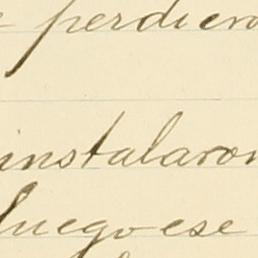 perdiero
instalaron
luego ese